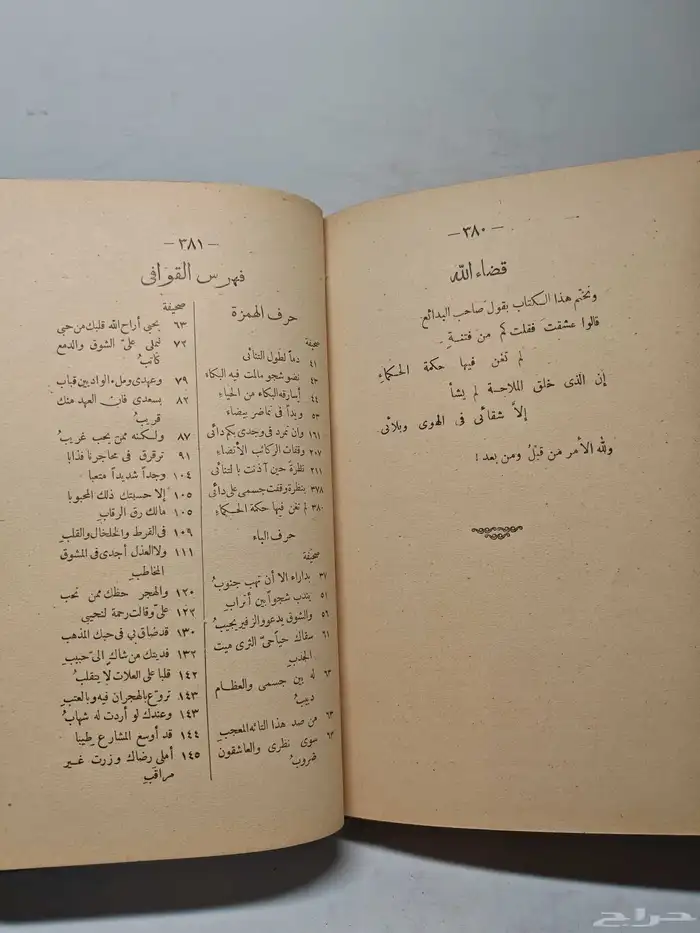 — ٣٨٠ —
قضاء الله
ونختم هذا الكتاب بقول صاحب البدائع
قالوا عشقت فقلت كم من فتنة
لم تغن فيها حكمة الحكماء
إن الذى خلق الملاحة لم يشأ
إلاّ شقائى فى الهوى وبلائى
ولله الأمر من قبلُ ومن بعد !
— ٣٨١ —
فهرس القوافى
حرف الهمزة
صحيفة
٤١ دماً لطول التنائى
٤٣ نضو شجو مالمت فيه البكاء
٤٤ أسارقه البكاء من الحياء
٥٣ وبدا فى تماضر بيضاء
١٦١ وان تمرد فى وجدى بكم دائى
٢٠٧ وقفات الركائب الأنضاء
٢١١ نظرة حين آذنت بالتنائى
٣٧٨ بنظرة وقفت جسمى على دائى
٣٨٠ لم تغن فيها حكمة الحكماء
حرف الباء
صحيفة
٣٧ بداراء الا أن تهب جنوبُ
٥١ يندب شجواً بين أتراب
٥٦ والشوق يدعو والزفير يجيبُ
٦١ سقاك حياً حىّ الثرى ميت
الجدب
٦٣ له بين جسمى والعظام
دبيبُ
٦٣ من صد هذا التائه المعجب
٦٣ سوى نظرى والعاشقون
ضروبُ
صحيفة
٦٣ بحبى أراح الله قلبك من حبى
٧٢ لتملى علىّ الشوق والدمع
كاتبُ
٧٩ وعهدى وملء الواد بين قباب
٨٢ بسعدى فان العهد منك
قريبُ
٨٧ ولكنه ممن يحب غريبُ
٩١ ترقرق فى محاجرنا فذابا
١٠٤ وجداً شديداً متعبا
١٠٥ إلا حسبتك ذلك المحبوبا
١٠٥ مالك رق الرقاب
١٠٩ فى القرط والخلخال والقلب
١١١ ولا العذل أجدى فى المشوق
المخاطب
١٢٠ والهجر حظك ممن تحب
١٢٢ علىّ وقالت رحمة لنحيبى
١٣٠ قد ضاق بى فى حبك المذهب
١٣٢ فديتك من شاك الىّ حبيب
١٤٢ قلبا على العلات لا يتقلبُ
١٤٣ تروّع بالهجران فيه وبالعتب
١٤٣ وعندك لو أردت له شهابُ
١٤٤ قد أوسع المشارع طيبا
١٤٥ أملى رضاك وزرت غير
مراقب
حراج